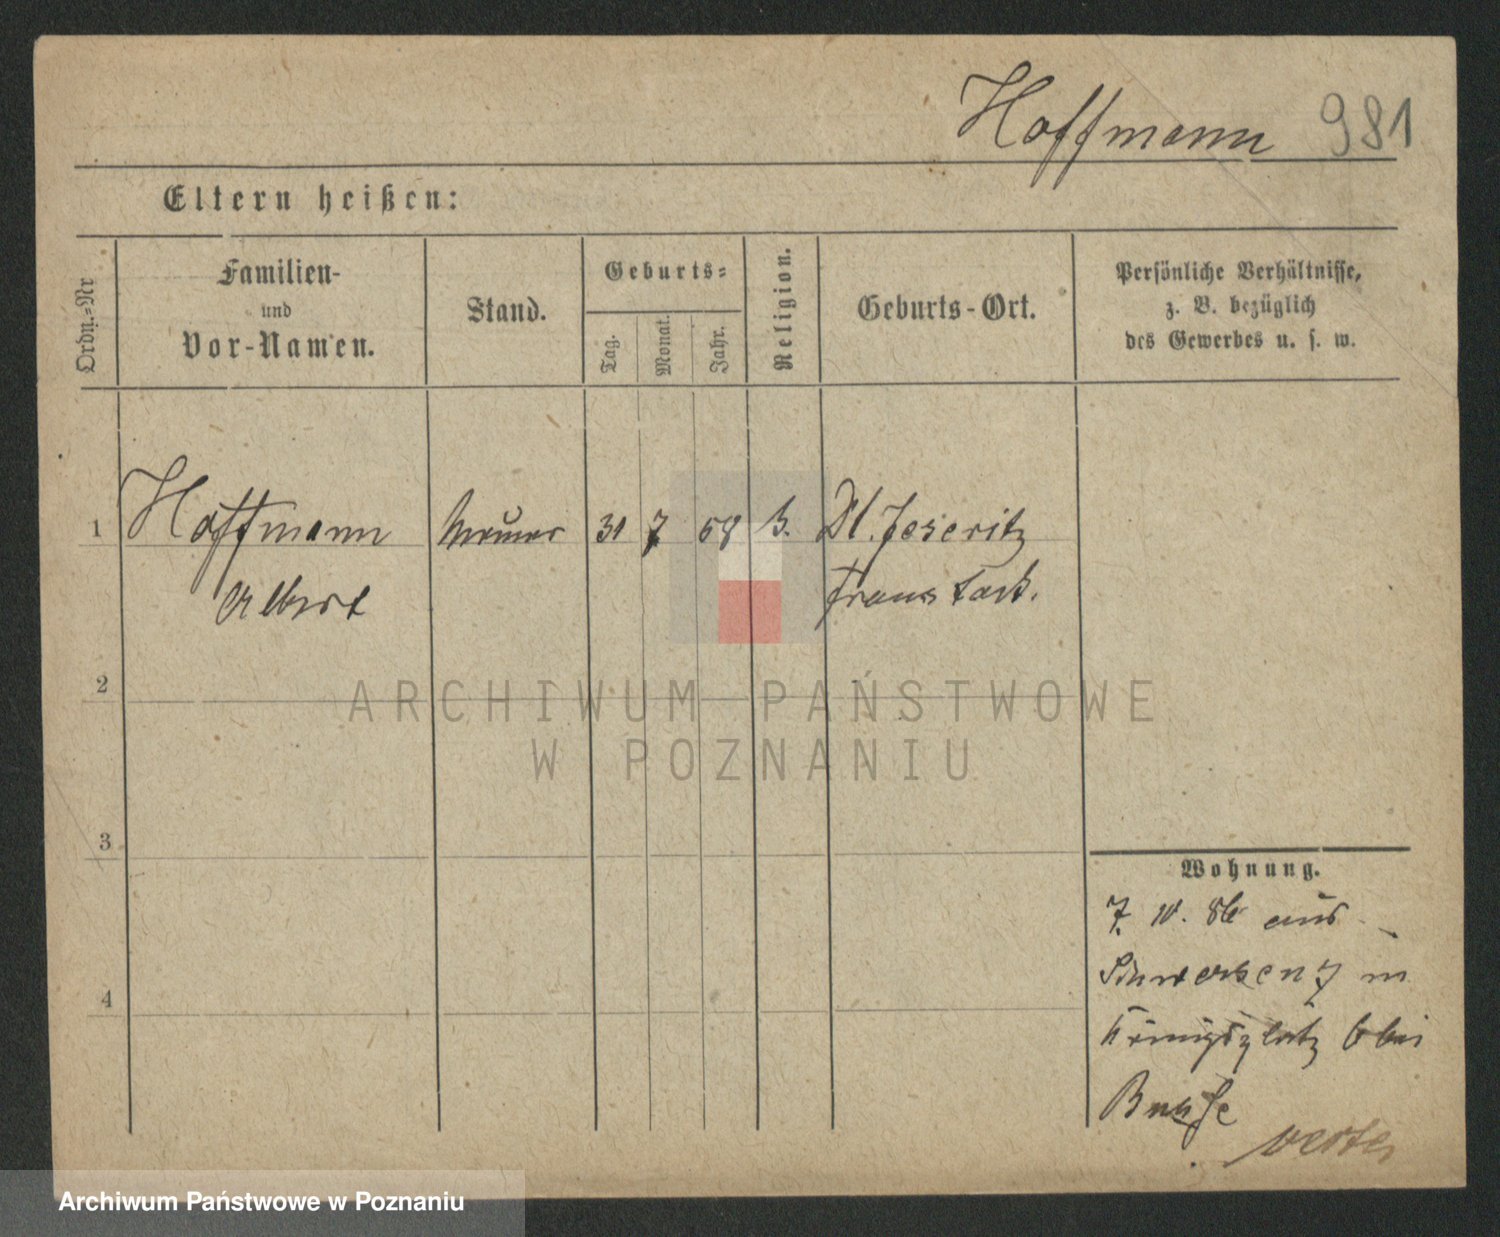 Hoffmann 981
Eltern heißen:
Ordn.-Nr
Familien-
und
Vor-Namen.
Stand.
Geburts-
Tag.
Monat.
Jahr.
Religion.
Geburts-Ort.
Persönliche Verhältnisse,
z. B. bezüglich
des Gewerbes u. s. w.
1 Hoffmann 31 7 68 Dt. Jeseritz
Albert Fraustadt.
2
3
4
Wohnung.
7. 10. 86 aus
Schwersenz in
Königsplatz 6 bei
Busse
ARCHIWUM PAŃSTWOWE
W POZNANIU
Archiwum Państwowe w Poznaniu